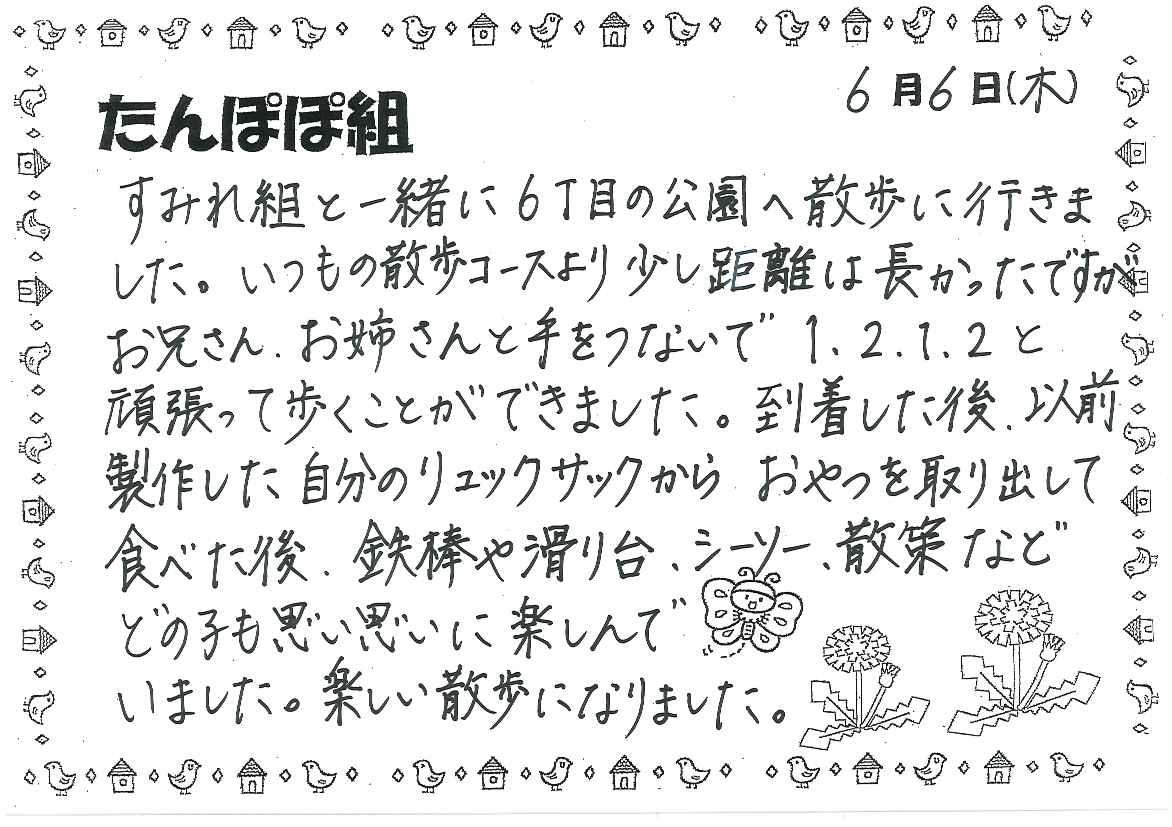 6月6日(木)
たんぽぽ組
すみれ組と一緒に6丁目の公園へ散歩に行きま
した。いつもの散歩コースより少し距離は長かったですが
お兄さん、お姉さんと手をつないで 1、2、1、2と
頑張って歩くことができました。到着した後、以前
製作した自分のリュックサックから おやつを取り出して
食べた後、鉄棒や滑り台、シーソー、散策など
どの子も思い思いに楽しんで
いました。楽しい散歩になりました。